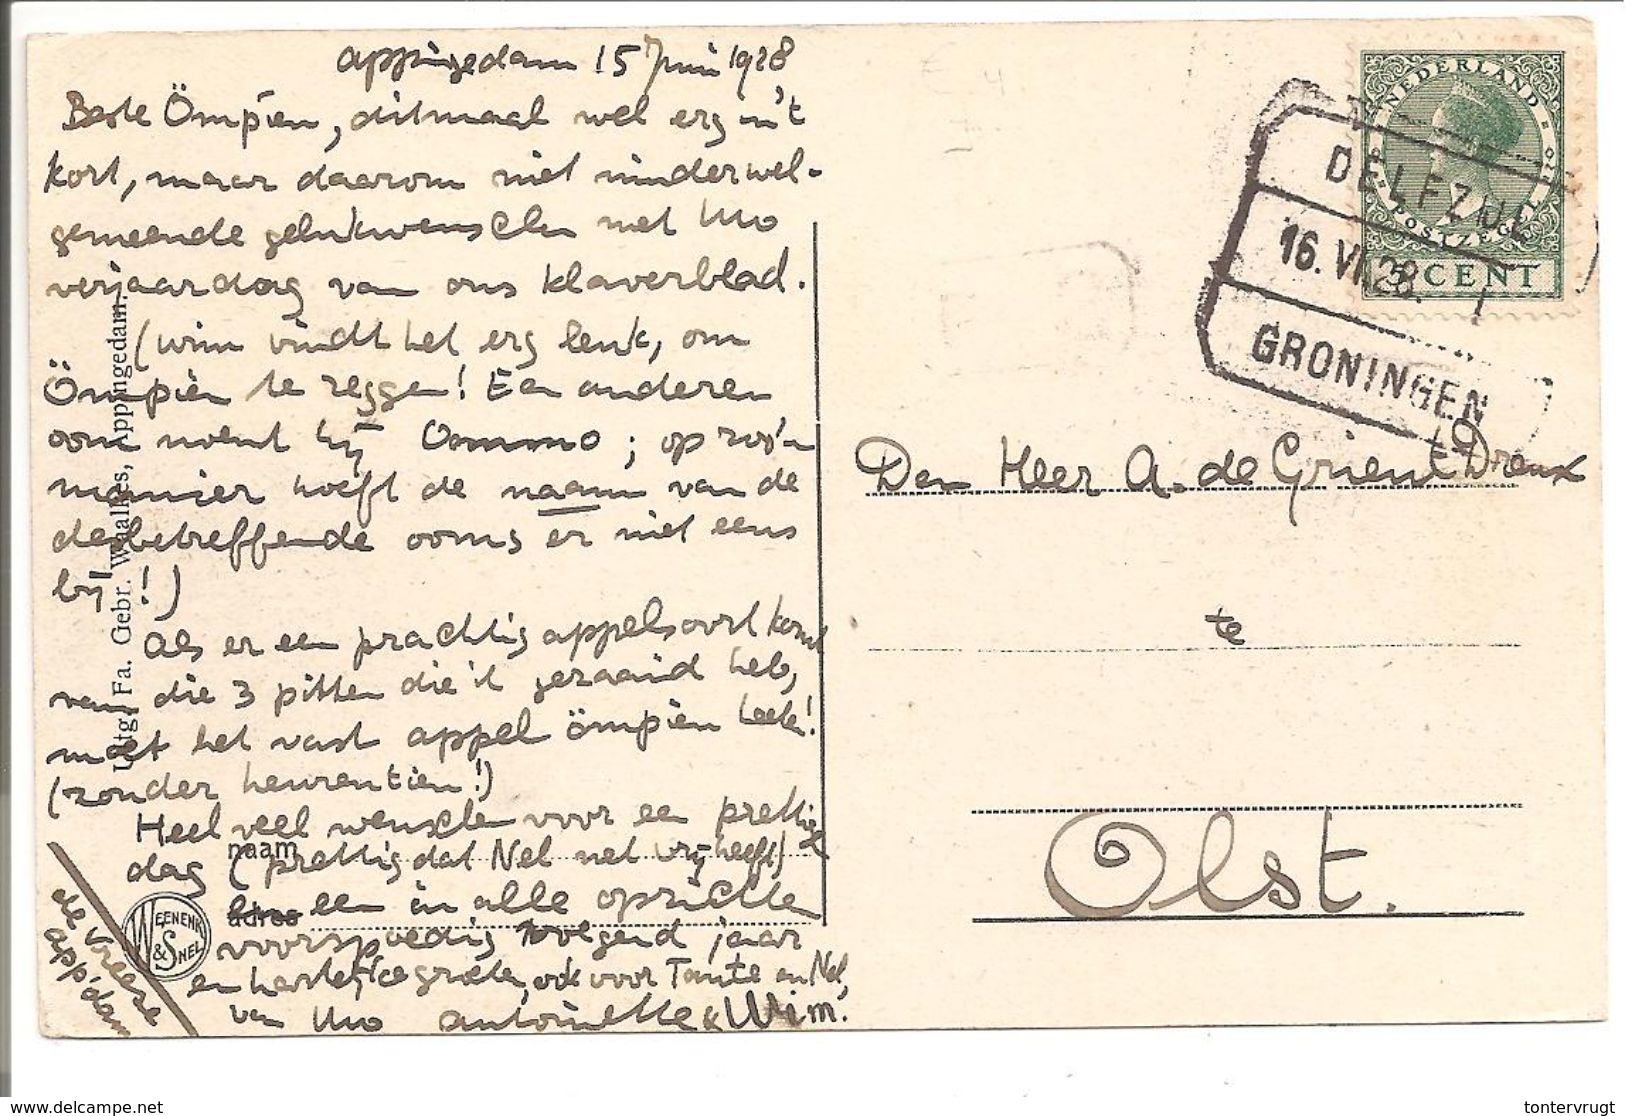 Appingedam 15 Juni 1928
Beste Ömpiën, ditmaal wel erg in 't
kort, maar daarom niet minder wel-
gemeende gelukwenschen met Uw
verjaardag van ons klaverblad.
(Wim vindt het erg leuk, om
Ömpiën te zeggen! Een anderen
oom noemt hij Oommo; op zoo'n
manier hoeft de naam van de
desbetreffende ooms er niet eens
bij!)
Als er een prachtig appelsoort komt
van die 3 pitten die 'k gezaaid heb,
moet het vast appel ömpiën heeten!
(zonder heurentien!)
Heel veel wenschen voor een prettige
dag (prettig dat Nel net vrij heeft)
en een in alle opzichte
voorspoedig volgend jaar
en hartelijke groeten, ook voor Tante en Nel,
van Uw Antoinette & Wim.
de Vreeze
app'dam
Uitg. Fa. Gebr. Waalkes, Appingedam.
naam
adres
WEENENK & SNEL
NEDERLAND
POSTZEGEL
5 CENT
DELFZIJL
16.VI.28.
GRONINGEN
Den Heer A. de Grient Dreux
te
Olst.
delcampe.net
tontervrugt